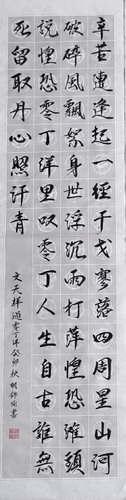 辛苦遭逢起一經干戈寥落四周星山河
破碎風飄絮身世浮沉雨打萍惶恐灘頭
說惶恐零丁洋里叹零丁人生自古誰無
死留取丹心照汗青
文天祥過零丁洋癸卯秋胡書